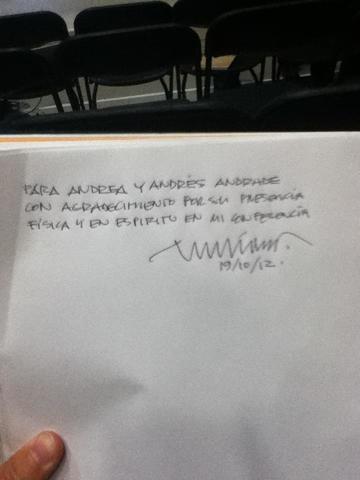 PARA ANDREA Y ANDRÉS ANDRADE
CON AGRADECIMIENTO POR SU PRESENCIA
FÍSICA Y EN ESPIRITU EN MI CONFERENCIA
19/10/12.